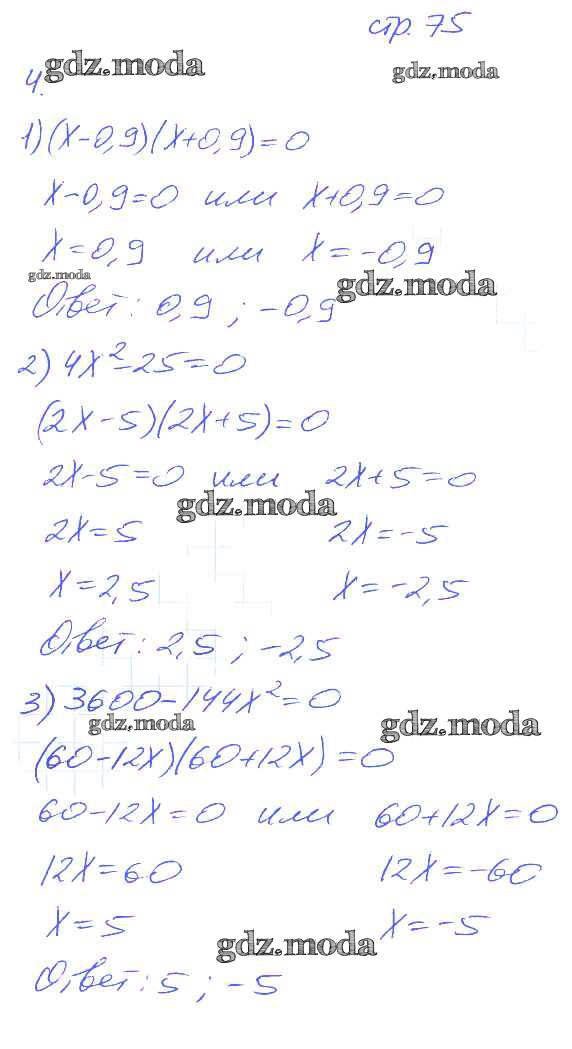 стр. 75
gdz.moda gdz.moda
4.
1) (x-0,9)(x+0,9)=0
x-0,9=0 или x+0,9=0
x=0,9 или x=-0,9
gdz.moda gdz.moda
Ответ: 0,9 ; -0,9
2) 4x²-25=0
(2x-5)(2x+5)=0
2x-5=0 или 2x+5=0
gdz.moda
2x=5 2x=-5
x=2,5 x=-2,5
Ответ: 2,5 ; -2,5
3) 3600-144x²=0
gdz.moda gdz.moda
(60-12x)(60+12x)=0
60-12x=0 или 60+12x=0
12x=60 12x=-60
x=5 x=-5
gdz.moda
Ответ: 5 ; -5